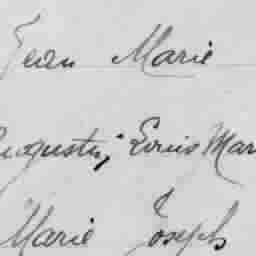 Jean Marie
Augustin Louis Mar
Marie Joseph